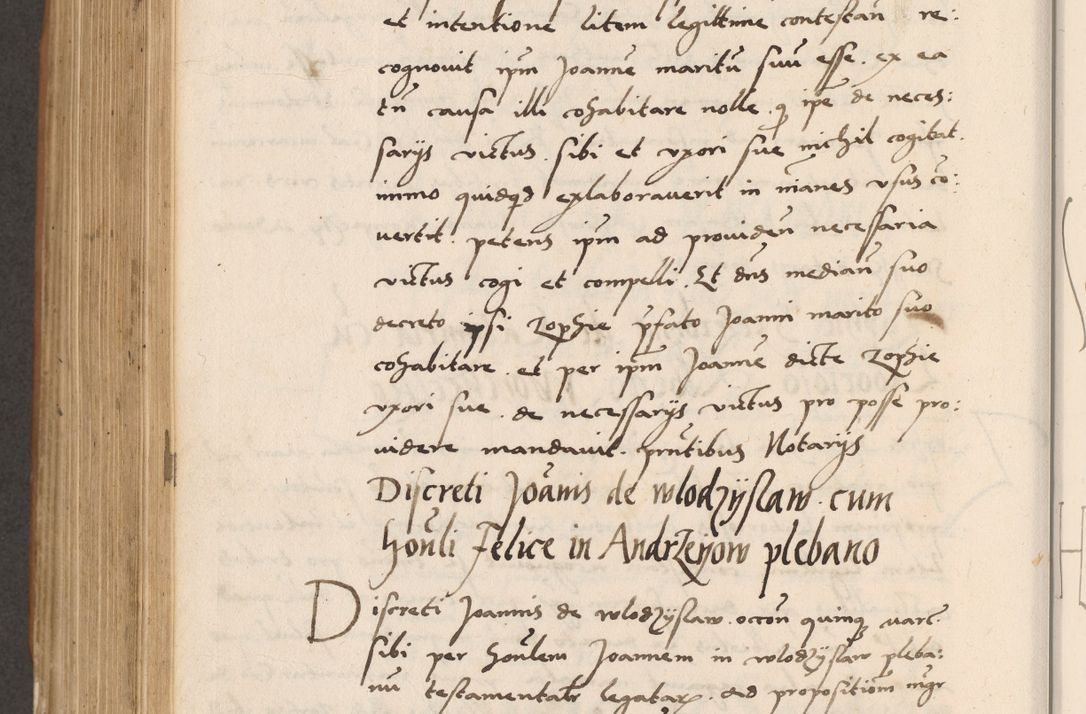 et intentione litem legittime contestan̄ re:
cognovit ip̄m Joannē maritū suū esse. ex ea
tn̄ causa illi cohabitare nolle. q̨ ip̄e de neces:
sarijs victus. sibi et uxori sue nichil cogitat.
immo quidq̨d exlaboraverit in inanes usus cō:
vertit. petens ip̄m ad providen̄ necessaria
victus cogi et compelli. Et dn̄s median̄ suo
decreto ipsi Zophie p̄fato Joanni marito suo
cohabitare. et per ip̄m Joannē dicte Zophie
uxori sue. de necessarijs victus pro posse pro:
videre mandavit. prn̄tibus Notarijs
Discreti Joānis de wlodzijslaw. cum
hon̄li Felice in Andrzeijow plebano
Discreti Joannis de wlodzyslaw. occon̄ quinq̨ marc̄.
sibi per hon̄lem Joannem in wlodzyslaw pleba:
nū testamentalr̄ legatarꝝ. Ad propositiom̄ mgr̄